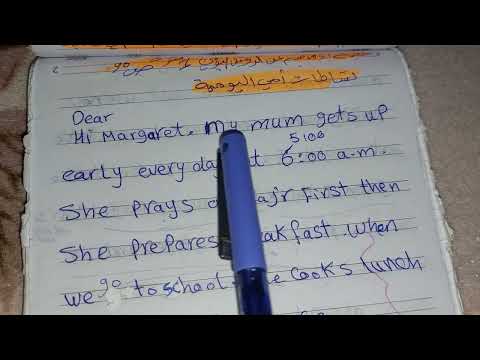 نشاطات أمي اليومية
Dear
Hi Margaret. my mum gets up
5:00
early every day at 6:00 a.m.
She prays fajr first then
She prepares breakfast when
we go to school she cooks lunch